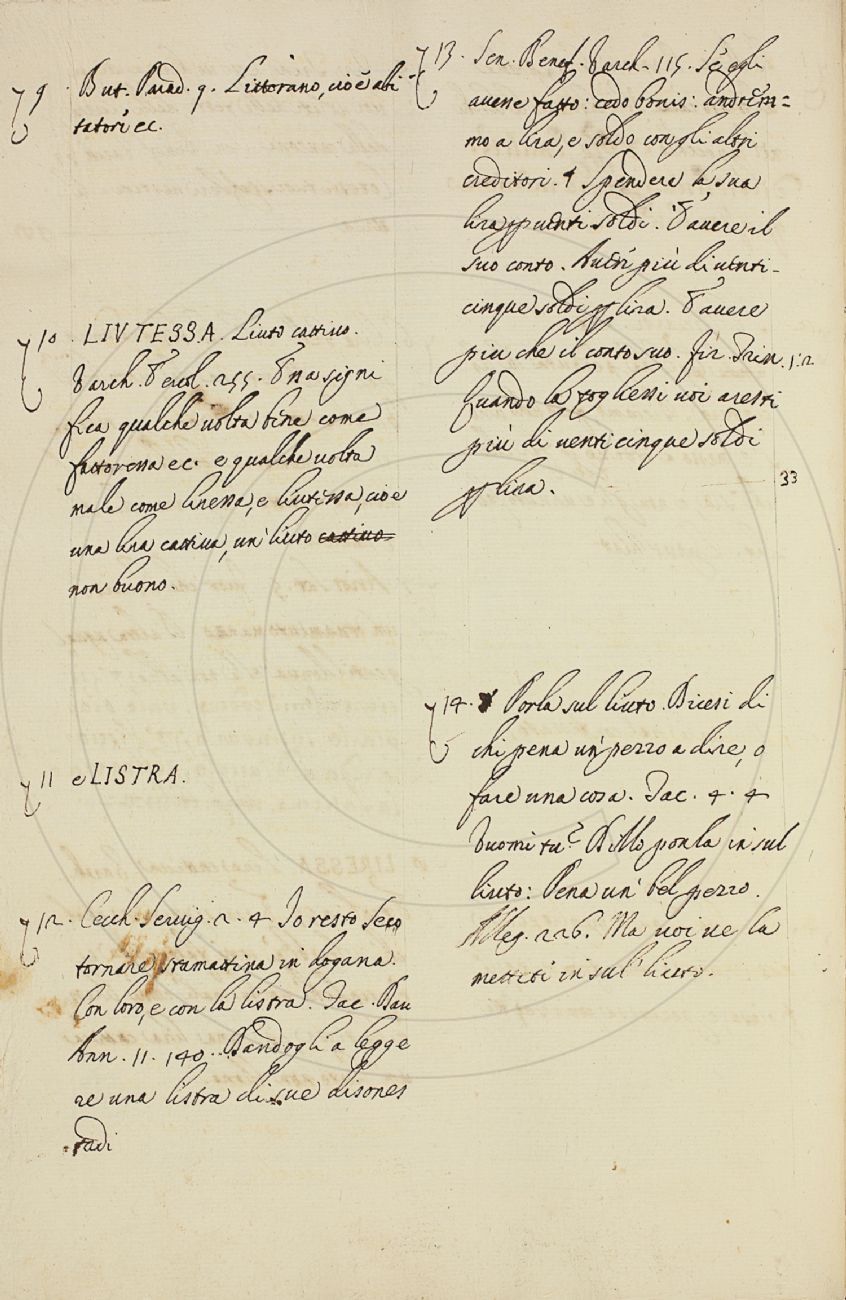 9. But. Parad. 9. Littorano, cioè abi-
tatori ec.
10. LIVTESSA. Liuto cattiuo.
Varch. Ercol. 255. Ena signi
fica qualche uolta bene come
fattoressa ec. e qualche uolta
male come liressa, e liutessa, cioe
una lira cattiua, un liuto cattiuo
non buono.
11 e LISTRA.
12. Cecch. Seruig. 2. 4 Io resto seco
tornare stamattina in dogana
Con loro, e con la listra. Tac. Dau
Ann. 11. 140. Dandogli a legge
re una listra di sue disones
tadi
13. Sen. Benef. Varch. 115. S'egli
auesse fatto: cedo bonis: andrem=
mo a lira, e soldo con gli altri
creditori. § Spendere la sua
lira p uenti soldi. E auere il
suo conto. Auer più di uenti-
cinque soldi p lira. E auere
piu che il conto suo. fir. Trin. 1. 2.
Quando la togliessi uoi aresti
più di uenti cinque soldi
p lira.
33
14. Porla sul liuto. Dicesi di
chi pena un pezzo a dire, o
fare una cosa. Tac. 4. 4
Vuomi tu? Dillo ponla in sul
liuto: Pena un' bel pezzo.
Alleg. 226. Ma uoi ue la
mettete in sul liuto.